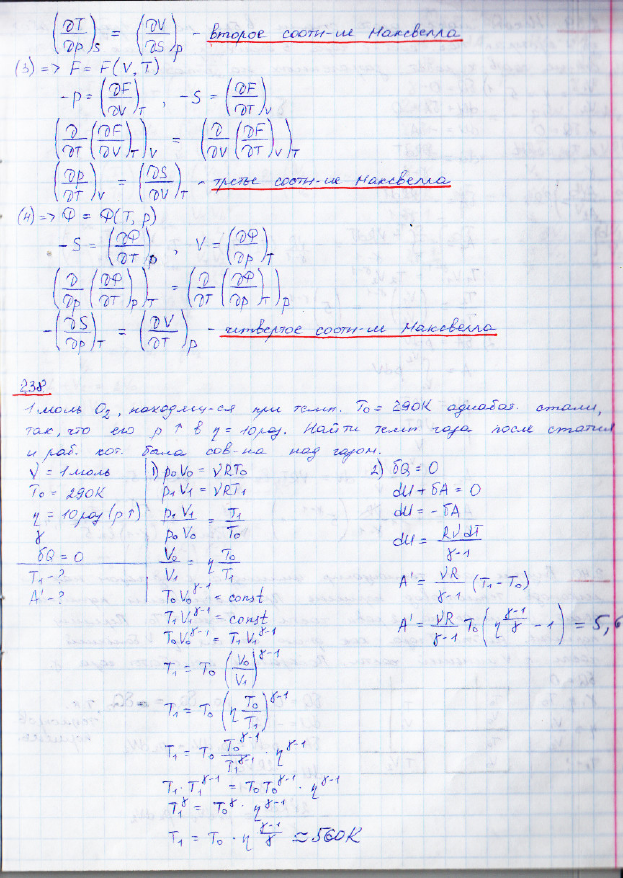 (∂T/∂p)_S = (∂V/∂S)_p - второе соотн-ие Максвелла
(3) => F = F(V, T)
-p = (∂F/∂V)_T , -S = (∂F/∂T)_V
(∂/∂T (∂F/∂V)_T)_V = (∂/∂V (∂F/∂T)_V)_T
(∂p/∂T)_V = (∂S/∂V)_T - третье соотн-ие Максвелла
(4) => Ф = Ф(T, p)
-S = (∂Ф/∂T)_p , V = (∂Ф/∂p)_T
(∂/∂p (∂Ф/∂T)_p)_T = (∂/∂T (∂Ф/∂p)_T)_p
-(∂S/∂p)_T = (∂V/∂T)_p - четвертое соотн-ие Максвелла
238
1 моль O₂, находящ-ся при темп. T₀ = 290К адиабат. сжали,
так, что его p ↑ в η = 10 раз. Найти темп газа после сжатия
и раб. кот. была сов-на над газом.
ν = 1 моль
T₀ = 290К
η = 10 раз (p↑)
γ
δQ = 0
T₁ - ?
A' - ?
1) p₀V₀ = νRT₀
p₁V₁ = νRT₁
p₀V₁/p₀V₀ = T₁/T₀
V₀/V₁ = η T₀/T₁
T₀V₀^(γ-1) = const
T₁V₁^(γ-1) = const
T₀V₀^(γ-1) = T₁V₁^(γ-1)
T₁ = T₀ (V₀/V₁)^(γ-1)
T₁ = T₀ (η T₀/T₁)^(γ-1)
T₁ = T₀ T₀^(γ-1)/T₁^(γ-1) · η^(γ-1)
T₁·T₁^(γ-1) = T₀T₀^(γ-1) · η^(γ-1)
T₁^γ = T₀^γ · η^(γ-1)
T₁ = T₀ · η^((γ-1)/γ) ≈ 560К
2) δQ = 0
dU + δA = 0
dU = -δA
dU = RνdT/(γ-1)
A' = νR/(γ-1) (T₁ - T₀)
A' = νR/(γ-1) T₀ (η^((γ-1)/γ) - 1) = 5,6